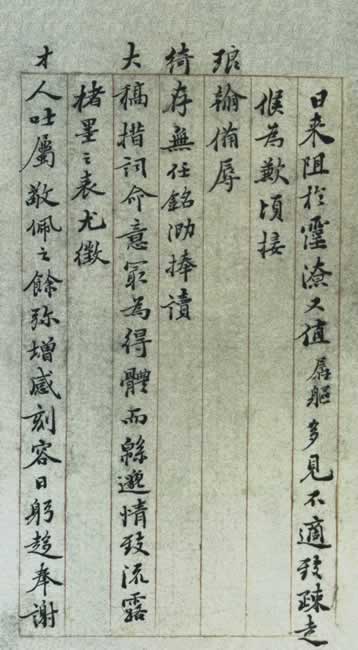 日来阻於霪潦又值孱軀多見不適致疎走
候為歉頃接
琅翰俻辱
綺存無任銘泐捧讀
大稿措詞命意冣為得體而緜邈情致流露
楮墨之表尤徵
才人吐屬敬佩之餘弥增感刻容日躬趍奉謝